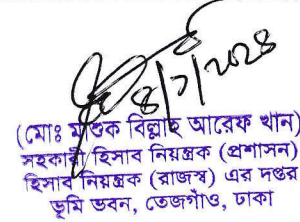 ৪/৭/২০২৪
(মোঃ মাশুক বিল্লাহ আরেফ খান)
সহকারী হিসাব নিয়ন্ত্রক (প্রশাসন)
হিসাব নিয়ন্ত্রক (রাজস্ব) এর দপ্তর
ভূমি ভবন, তেজগাঁও, ঢাকা